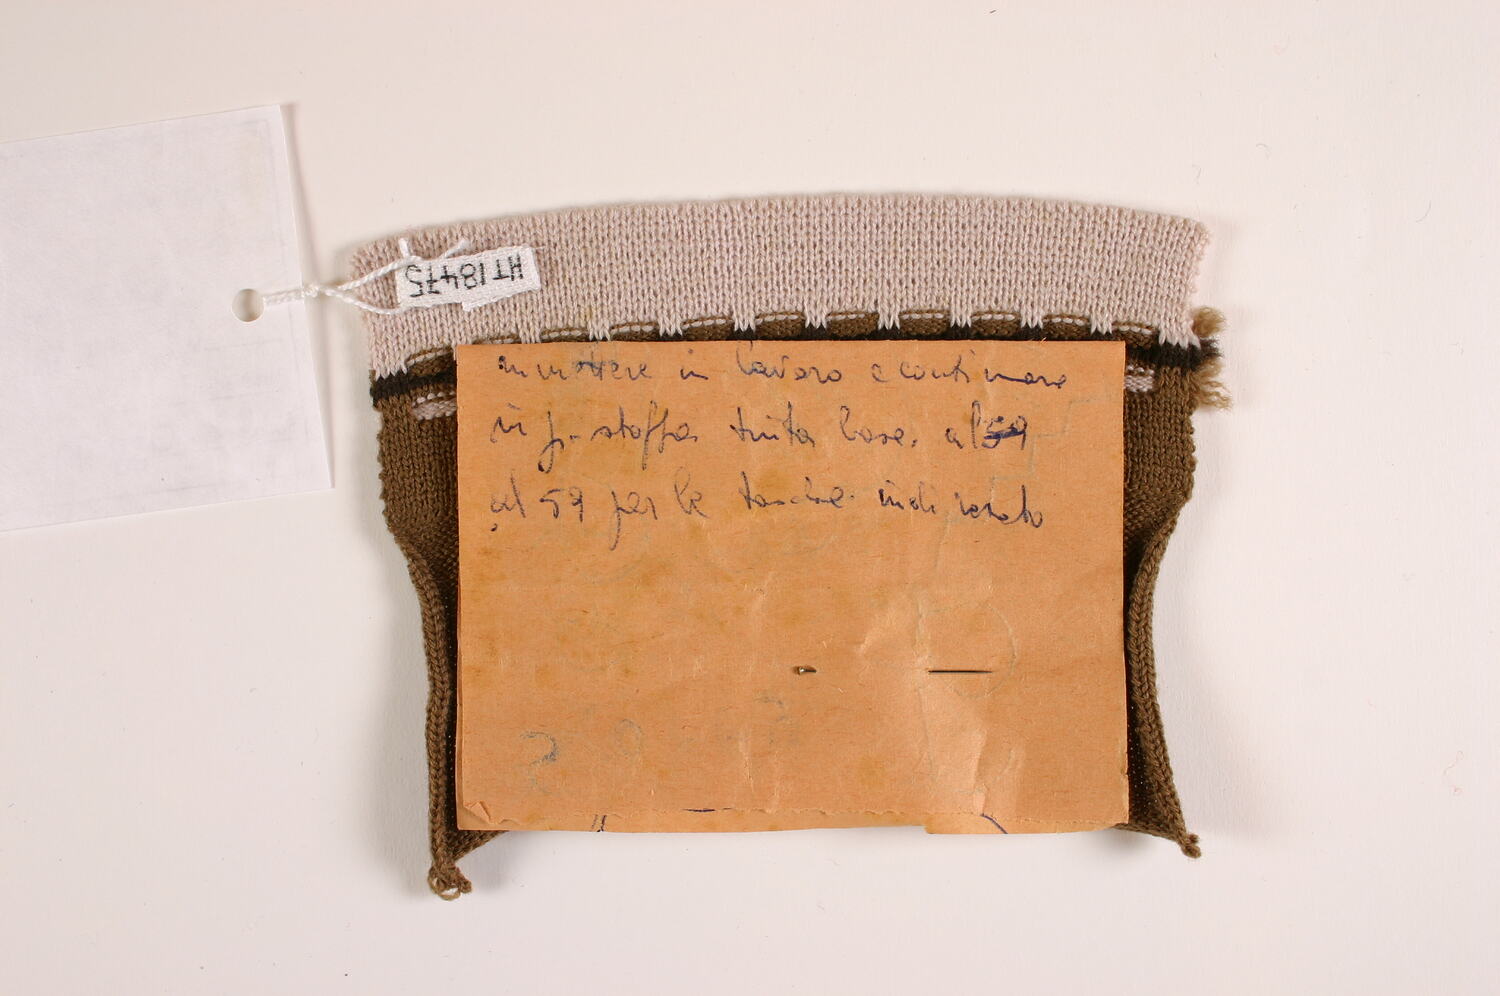 HT18475
rimettere in lavoro e continuare
in p. stoffa tinta base. al 59
al 59 per le tasche. indi scarto